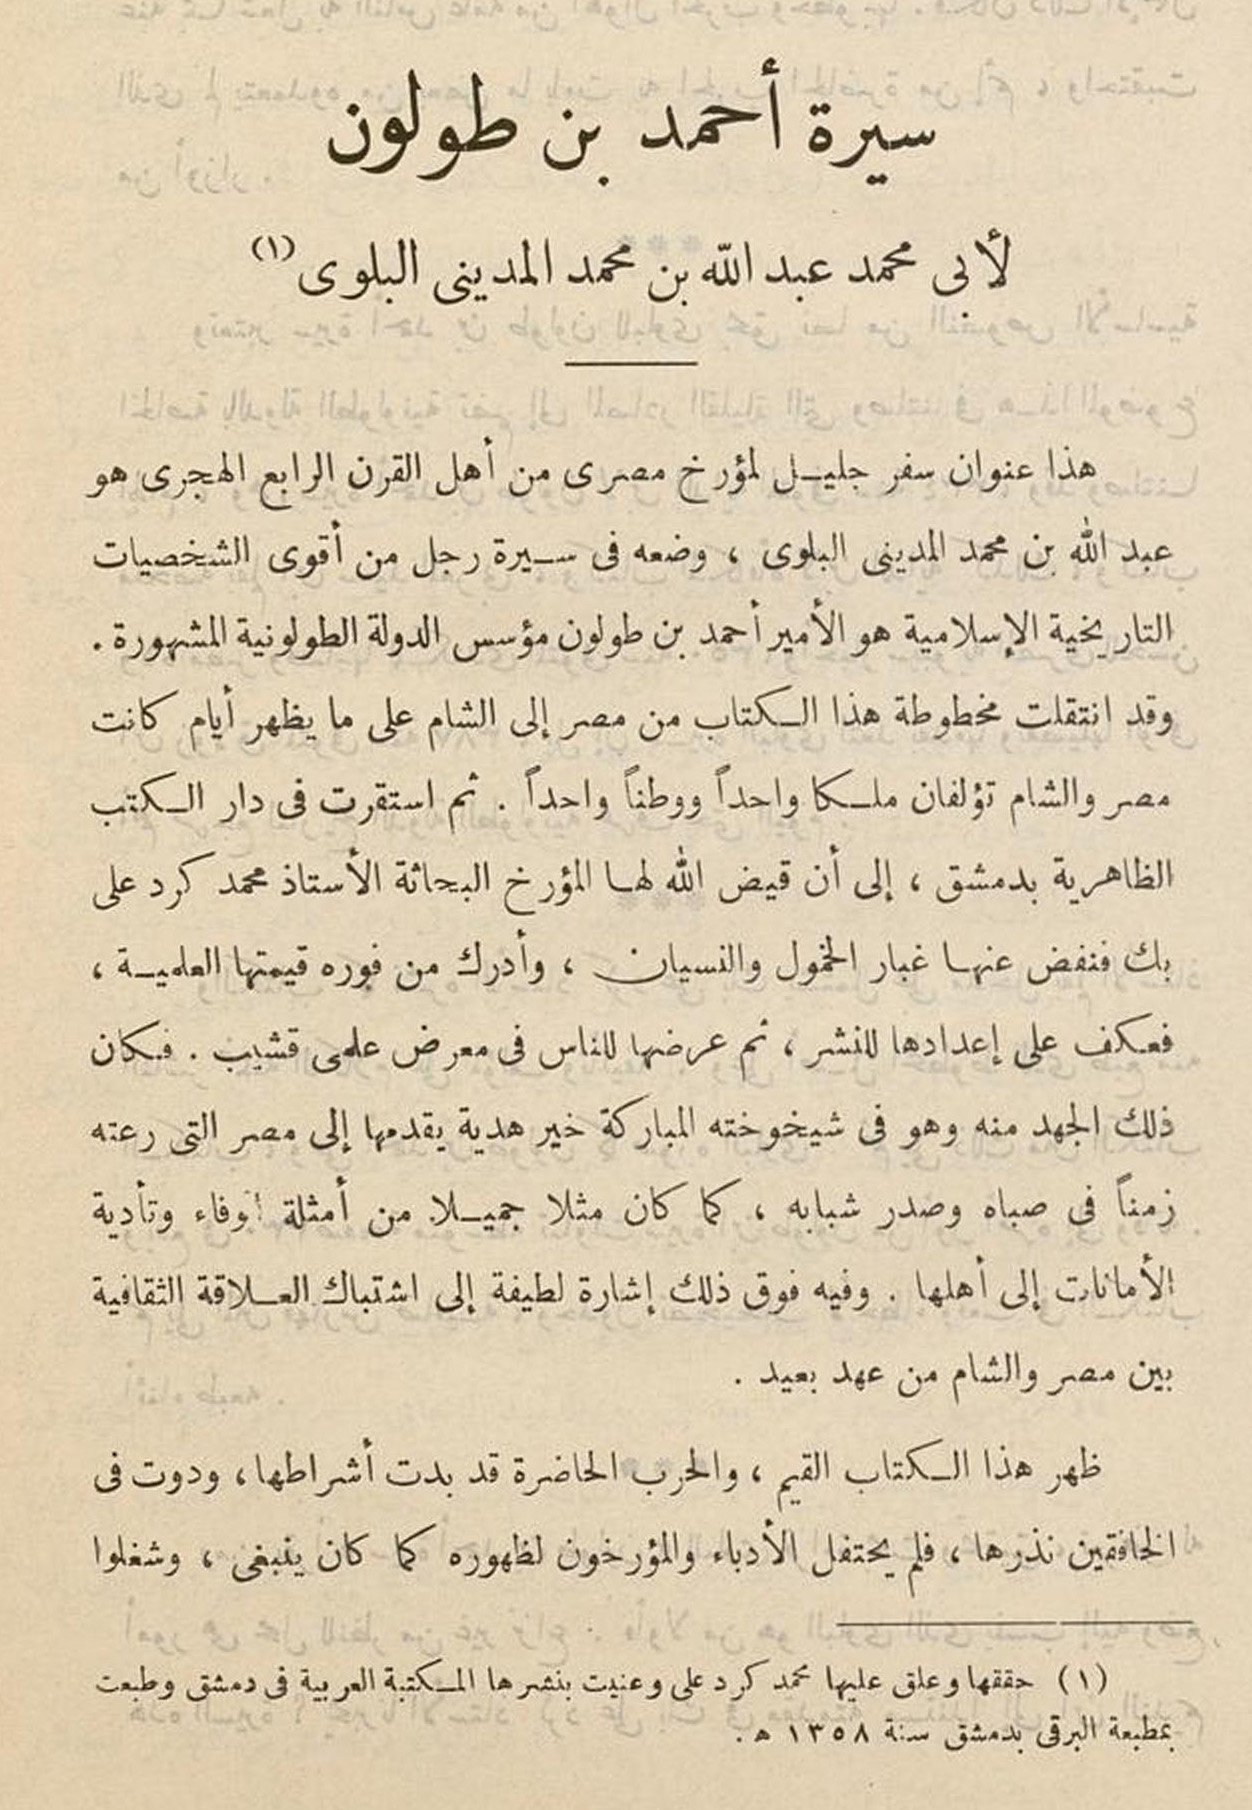 سيرة أحمد بن طولون
لأبى محمد عبد الله بن محمد المدينى البلوى (١)
هذا عنوان سفر جليل لمؤرخ مصرى من أهل القرن الرابع الهجرى هو
عبد الله بن محمد المدينى البلوى ، وضعه فى سيرة رجل من أقوى الشخصيات
التاريخية الإسلامية هو الأمير أحمد بن طولون مؤسس الدولة الطولونية المشهورة .
وقد انتقلت مخطوطة هذا الكتاب من مصر إلى الشام على ما يظهر أيام كانت
مصر والشام تؤلفان ملكا واحداً ووطناً واحداً . ثم استقرت فى دار الكتب
الظاهرية بدمشق ، إلى أن قيض الله لها المؤرخ البحاثة الأستاذ محمد كرد على
بك فنفض عنها غبار الخمول والنسيان ، وأدرك من فوره قيمتها العلمية ،
فعكف على إعدادها للنشر ، ثم عرضها للناس فى معرض علمى قشيب . فكان
ذلك الجهد منه وهو فى شيخوخته المباركة خير هدية يقدمها إلى مصر التى رعته
زمناً فى صباه وصدر شبابه ، كما كان مثلا جميلا من أمثلة الوفاء وتأدية
الأمانات إلى أهلها . وفيه فوق ذلك إشارة لطيفة إلى اشتباك العلاقة الثقافية
بين مصر والشام من عهد بعيد .
ظهر هذا الكتاب القيم ، والحرب الحاضرة قد بدت أشراطها ، ودوت فى
الخافقين نذرها ، فلم يحتفل الأدباء والمؤرخون لظهوره كما كان ينبغى ، وشغلوا
(١) حققها وعلق عليها محمد كرد على وعنيت بنشرها المكتبة العربية فى دمشق وطبعت
بمطبعة البرقى بدمشق سنة ١٣٥٨ ه .